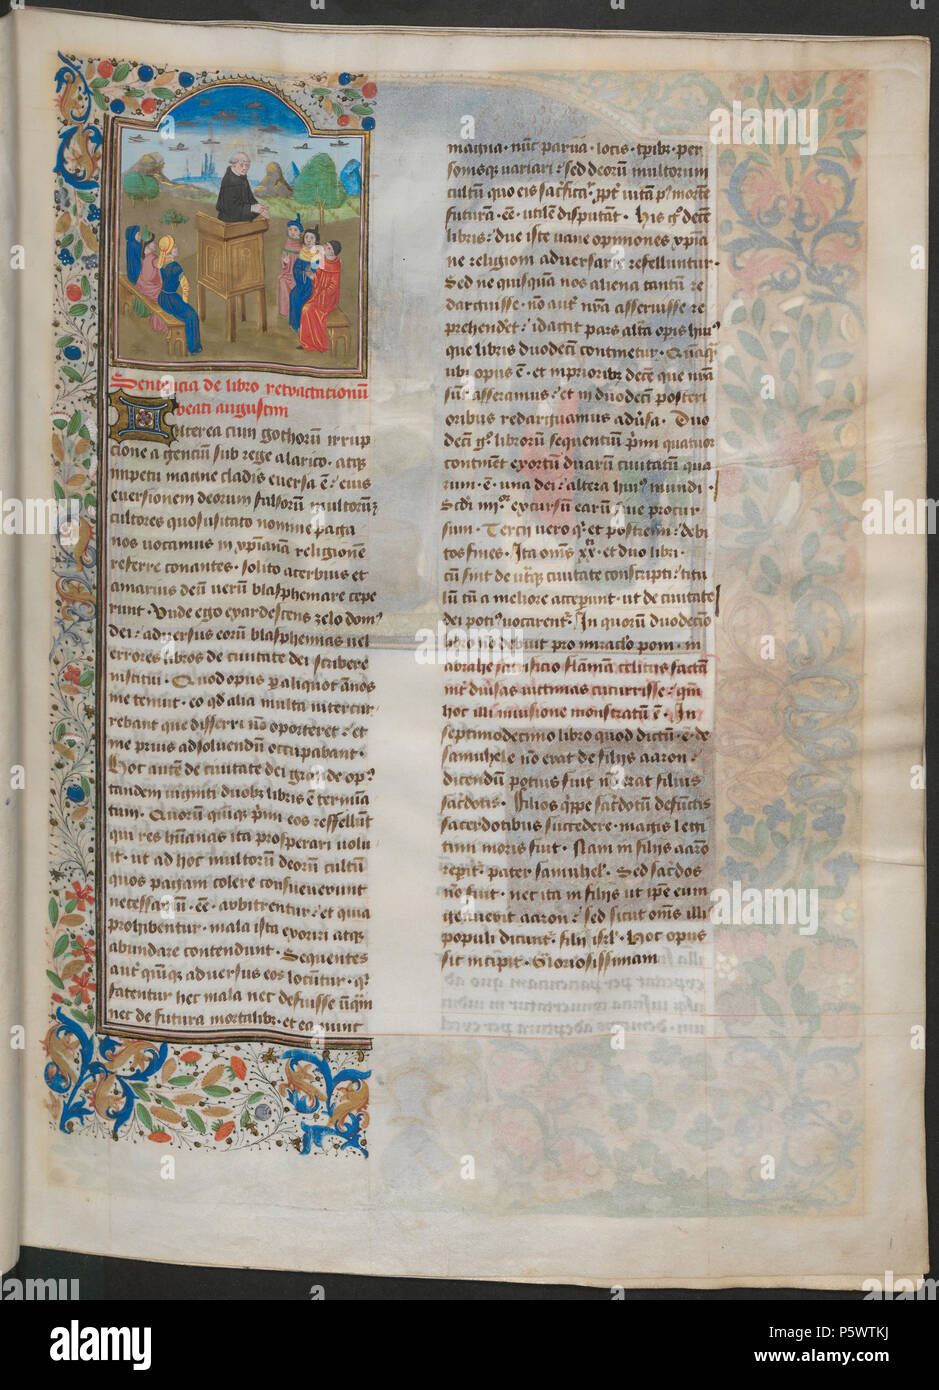 Sentencia de libro retractationũ
beati augustini
Interea cum gothorũ irrup
cione agenciũ sub rege alarico · atq;
impetu magne cladis eversa ẽ : eius
eversionem deorum falsorũ multorũq;
cultores quos usitato nomine paga
nos vocamus in xp̃ianã religionẽ
referre conantes · solito acerbius et
amarius deũ verũ blasphemare cepe
runt · Vnde ego exardescens zelo dom⁹
dei : adversus eorũ blasphemias vel
errores libros de civitate dei scribere
institui · Quod opus p aliquot ãnos
me tenuit · eo qd alia multa intercur
rebant que differri nõ oporteret : et
me prius ad solvendũ occupabant ·
Hoc autẽ de civitate dei grãde op⁹
tandem viginti duob; libris ẽ termina
tum · Quorũ quiq; prim eos reffellũt
qui res hũanas ita prosperari volũ
it · ut ad hoc multorũ deorũ cultũ
quos pagani colere consueverunt
necessariũ · eẽ · arbitrentur : et quia
prohibentur · mala ista exoriri atq;
abundare contendunt · Sequentes
aut̃ quiq; adversus eos locũtur · q
fatentur hec mala nec defuisse ũq̃m
nec de futura mortalib; · et ea nunc
magna · nũc parva · locis · tp̃ib; · per
sonisq; variari : sed deorũ multorum
cultũ quo eis sacrificat̃ · ppt̃ vitã p⁹ mortẽ
futurã · eẽ · utilẽ disputãt · His g⁹ decẽ
libris : due iste vane opiniones xp̃ia
ne religioni adversarie refelluntur ·
Sed ne quisquã nos aliena tantũ re
darguisse · nõ aut̃ nr̃a asseruisse re
prehendet : id agit pars alt̃a opis hui⁹
que libris duodecĩ continetur · Quãq;
ubi opus ẽ · et in priorib; decẽ que nr̃a
sũt asseramus : et in duodecĩ posteri
oribus redarguamus adũsa · Duo
decĩ g⁹ librorũ sequentiũ prim quatuor
continẽt exortũ duarũ civitatũ qua
rum · ẽ · una dei : altera hui⁹ mundi ·
Scđi iiij⁰ʳ excursũ earũ : sive procur
sum · Tercij vero q · et postremi : debi
tos fines · Ita om̃s xx · et duo libri ·
cũ sint de ut̃q; civitate conscripti : titu
lũ tñ a meliore acceperunt · ut de civitate
dei poti⁹ vocarent̃ · In quorũ duodecĩo
libro nõ debuit pro miraclo poni · in
abrahe sacrificio flãmã celitus factã
int̃ divisas victimas cucurrisse : qm̃
hoc illi in visione monstratũ ẽ · In
septimodecimo libro quod dictũ · ẽ · de
samuhele nõ erat de filijs aaron :
dicendũ potius fuit nõ erat filius
sacđotis · Filios qippe sacđotũ defũctis
sacerdotibus succedere · magis legi
timi moris fuit · Nam in filijs aarõ
repit̃ · pater samuhel · Sed sacđos
nõ fuit · nec ita in filijs ut ipe eum
genuerit aaron : sed sicut om̃s illi
populi dicunt̃ · filij isrl · Hoc opus
sic incipit · Gloriosissimam
alamy
a
Image ID: P5WTKJ
www.alamy.com